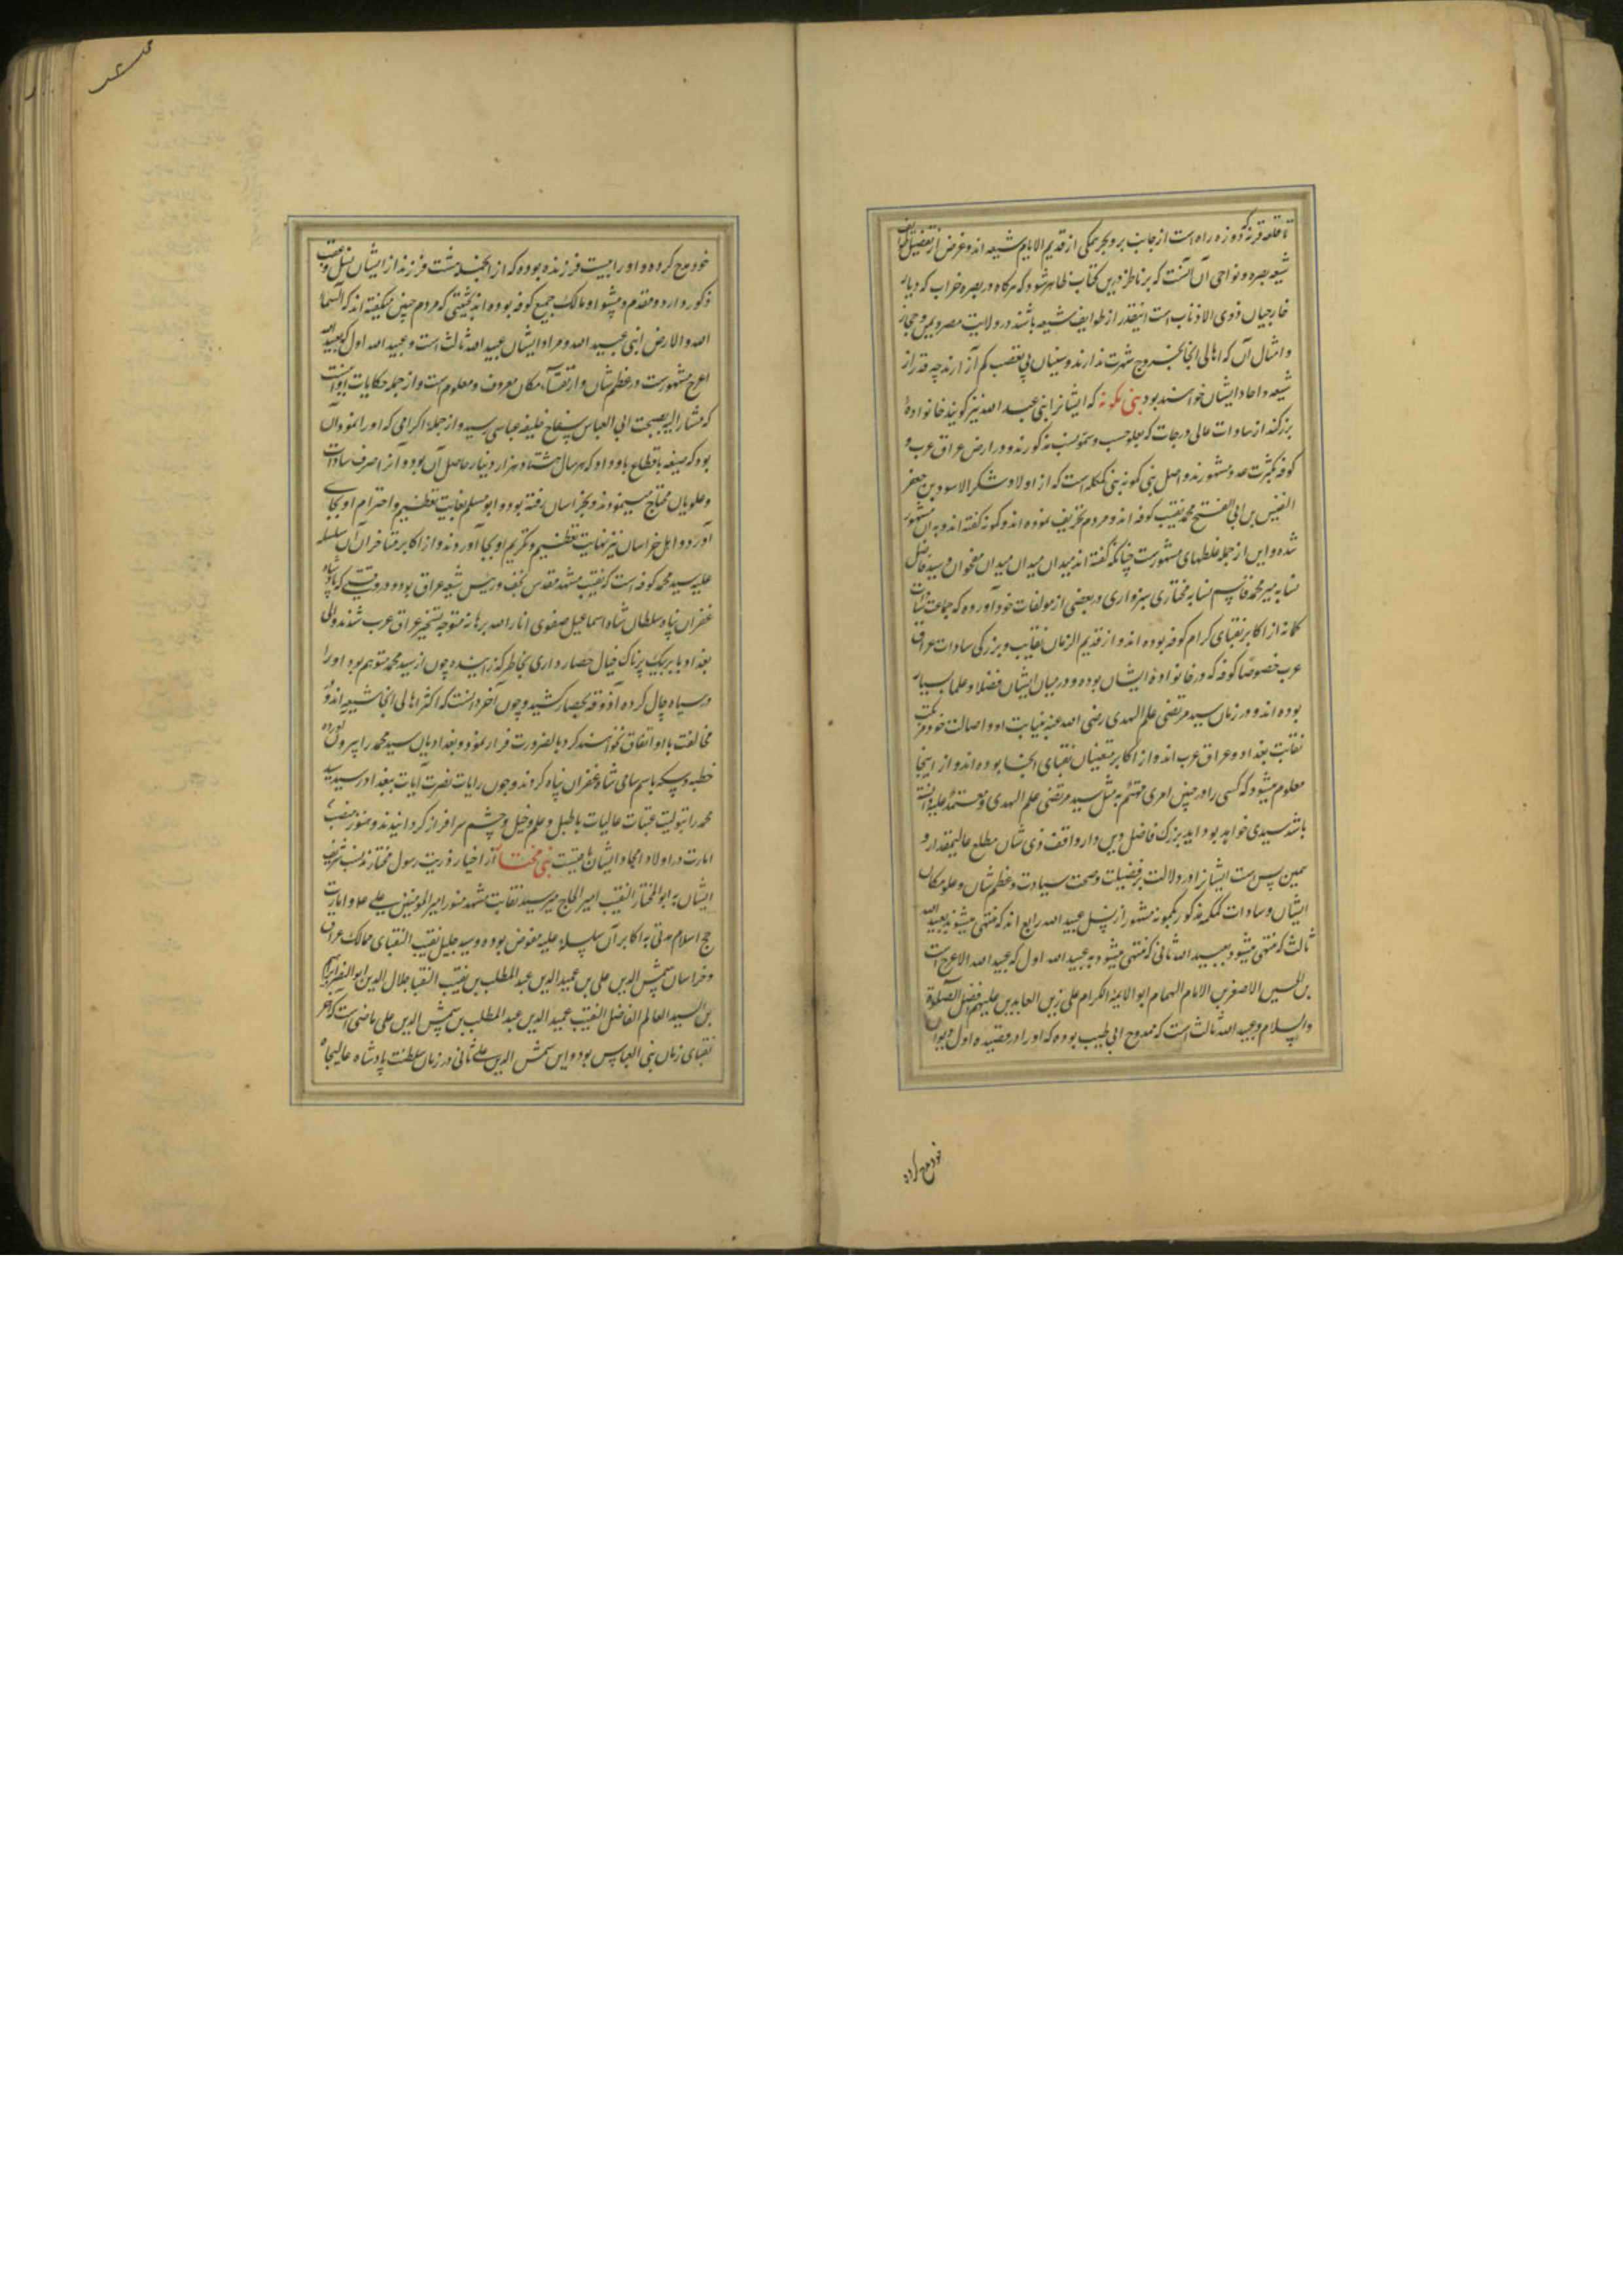 تا قلعه قرنه که دوزه راه است از جانب بر و بحر همگی از قدیم الایام شیعه اند و غرض از تفصیل طوایف
شیعه بصره و نواحی آن آنست که بر ناظر درین کتاب ظاهر شود که هرگاه در بصره خراب که دیار
خارجیان ذوی الاذناب است اینقدر از طوایف شیعه باشند در ولایت مصر و یمن و حجاز
و امثال آن که اهالی انجا بخروج شهرت ندارند و سنیان بی تعصب کم آزارند چه قدر از
شیعه و احاد ایشان خواهند بود بنی کمونه که ایشانرا بنی عبد الله نیز گویند خانوادهٔ
بزرگند از سادات عالی درجات که بعلو حسب و سمو نسب مذکورند و در ارض عراق عرب و
کوفه بکثرت عدد مشهورند و اصل بنی کمونه بنی کمکمه است که از اولاد شکر الاسود بن جعفر
النفیس بن ابی الفتح محمد نقیب کوفه اند و مردم تحریف نموده اند و کمونه گفته اند و بدان مشهور
شده و این از جمله غلطهای مشهورست چنانکه گفته اند میدان میدان میدان مخوان و سید فاضل
نسابه میر محمد قاسم نسابه مختاری سبزواری در بعضی از مولفات خود آورده که جماعت سادات
کمانه از اکابر نقبای کرام کوفه بوده اند و از قدیم الزمان نقابت و بزرگی سادات عراق
عرب خصوصا کوفه که در خانوادهٔ ایشان بوده و در میان ایشان فضلا و علما بسیار
بوده اند و در زمان سید مرتضی علم الهدی رضی الله عنه بنیابت او و اصالت خود مرتکب
نقابت بغداد و عراق عرب اند و از اکابر متعینان نقبای انجا بوده اند و از اینجا
معلوم میشود که کسی را در چنین امری مهتم به مثل سید مرتضی علم الهدی و معتمد علیه دانسته
باشد سیدی خواهد بود اید بزرگ فاضل دین دار واقف ذی شان مطلع عالیمقدار و
همین پس است ایشانرا در دلالت بر فضیلت و صحت سیادت و عظم شان و علو مکان
ایشان و سادات کمکمه مذکور بکمونه مشهور از نسل عبید الله رابع اند که منتهی میشوند بعبید الله
ثالث که منتهی میشود بعبید الله ثانی که منتهی میشود به عبید الله اول که عبید الله الاعرج است
بن الحسین الاصغر بن الامام الهمام ابو الایمة الکرام علی زین العابدین علیهم افضل الصلوة
والسلام و عبید الله ثالث است که ممدوح ابی طیب بوده که او را در قصیده اول دیوان
خود مدح کرده
خود مدح کرده و او را بیست فرزنده بوده که از انجمله هشت فرزند از ایشان نسل و عقب
ذکور دارد و مقدم و پیشوا و مالک جمیع کوفه بوده اند بحیثیتی که مردم چنین میگفته اند که السماء
لله والارض لبنی عبید الله و مراد ایشان عبید الله ثالث است و عبید الله اول که بعبید الله
اعرج مشهورست در عظم شان و ارتفاع مکان معروف و معلوم است و از جمله حکایات او آنست
که مشار الیه بصحبت ابی العباس سفاح خلیفه عباسی رسید و از جمله اکرامی که او را نمود آن
بود که ضیعه باقطاع باو داد که هر سال هشتاد هزار دینار حاصل آن بود و آنرا صرف سادات
و علویان محتاج مینمود و بخراسان رفته بود و ابو مسلم بغایت تعظیم و احترام او بجای
آورد و اهل خراسان نیز نهایت تعظیم و تکریم او بجا آوردند و از اکابر متاخران آن سلسله
علیه سید محمد کوفه است که نقیب مشهد مقدس نجف و رییس شیعه عراق بود و در وقتی که پادشاه
غفران پناه سلطان شاه اسماعیل صفوی انار الله برهانه متوجه تسخیر عراق عرب شدند والی
بغداد باربیک پرناک خیال حصار داری بخاطر گذرانیده چون از سید محمد متوهم بود او را
در سیاه چال کرده آذوقه بحصار کشید و چون آخر دانست که اکثر اهالی انجا شیعه اند و
مخالفت با او اتفاق نخواهند کرد بالضرورت فرار نمود و بغدادیان سید محمد را بیرون آورده
خطبه و سکه باسم سامی شاه غفران پناه کردند و چون رایات نصرت آیات ببغداد رسید سید
محمد را بتولیت عتبات عالیات با طبل و علم و خیل و حشم سرافراز گردانیدند و هنوز منصب
امارت در اولاد امجاد ایشان باقیست بنی مختار از اخیار ذریت رسول مختارند نسب شریف
ایشان به ابو المختار النقیب امیر الحاج میرسد نقابت مشهد منور امیر المومنین علی و امارت
حج اسلام مدتی به اکابر آن سلسله علیه مفوض بوده و سید جلیل نقیب النقبای ممالک عراق
و خراسان شمس الدین علی بن عمید الدین عبد المطلب بن نقیب النقبا جلال الدین ابو النصر ابراهیم
بن السید العالم الفاضل النقیب عمید الدین عبد المطلب بن شمس الدین علی ماضی است که آخر
نقبای زمان بنی العباس بود و این شمس الدین علی ثانی در زمان سلطنت پادشاه عالیجاه